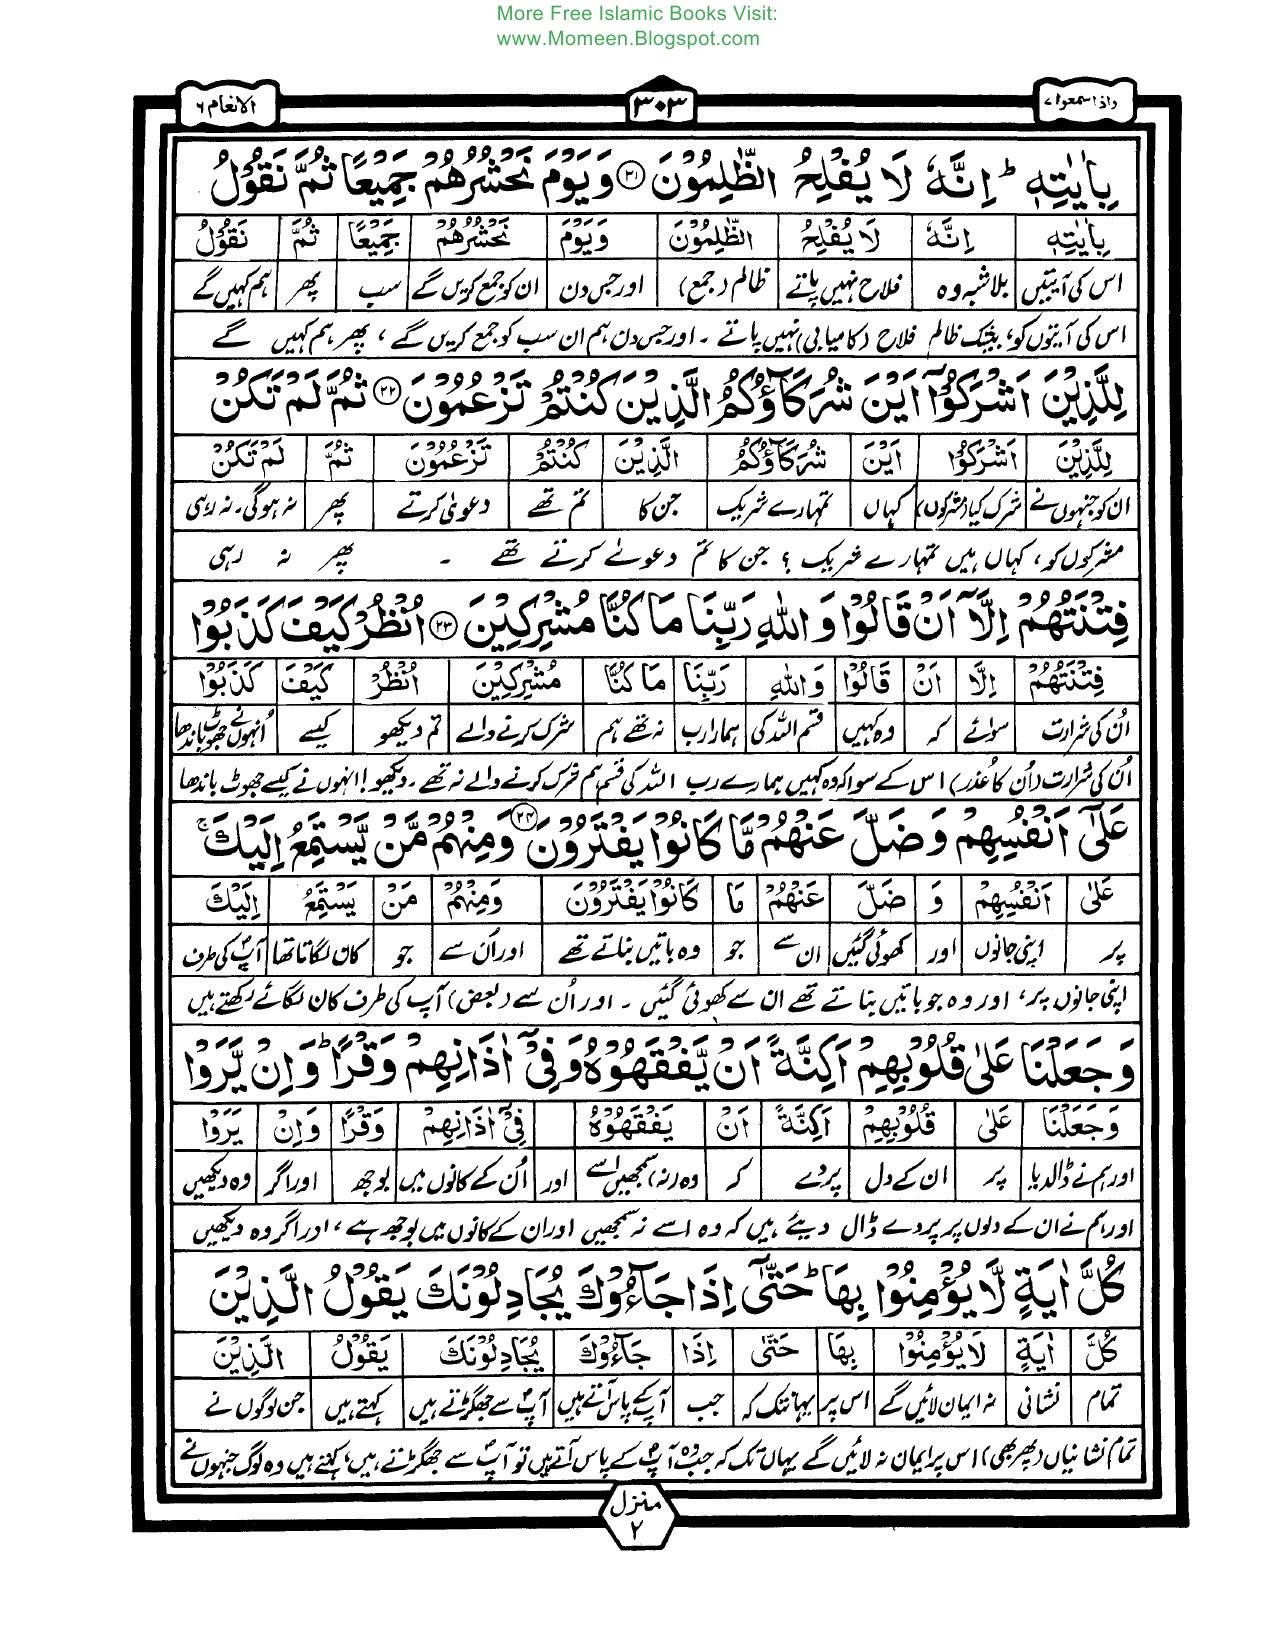 More Free Islamic Books Visit:
www.Momeen.Blogspot.com
واذا سمعوا ٧
٣٠٣
الانعام ٦
بِاٰيٰتِهٖ ؕ اِنَّهٗ لَا يُفْلِحُ الظّٰلِمُوْنَ ۟۲۱ وَيَوْمَ نَحْشُرُهُمْ جَمِيْعًا ثُمَّ نَقُوْلُ
بِاٰيٰتِهٖ اِنَّهٗ لَا يُفْلِحُ الظّٰلِمُوْنَ وَيَوْمَ نَحْشُرُهُمْ جَمِيْعًا ثُمَّ نَقُوْلُ
اس کی آیتیں بلاشبہ وہ فلاح نہیں پاتے ظالم (جمع) اور جس دن ان کو جمع کریں گے سب پھر ہم کہیں گے
اس کی آیتوں کو، بیشک ظالم فلاح (کامیابی) نہیں پاتے ۔ اور جس دن ہم ان سب کو جمع کریں گے ، پھر ہم کہیں گے
لِلَّذِيْنَ اَشْرَكُوْٓا اَيْنَ شُرَكَآؤُكُمُ الَّذِيْنَ كُنْتُمْ تَزْعُمُوْنَ ۲۲ ثُمَّ لَمْ تَكُنْ
لِلَّذِيْنَ اَشْرَكُوْٓا اَيْنَ شُرَكَآؤُكُمُ الَّذِيْنَ كُنْتُمْ تَزْعُمُوْنَ ثُمَّ لَمْ تَكُنْ
ان کو جنہوں نے شرک کیا (مشرکوں) کہاں تمہارے شریک جن کا تم تھے دعویٰ کرتے پھر نہ ہوگی ۔ نہ رہی
مشرکوں کو، کہاں ہیں تمہارے شریک ؟ جن کا تم دعوےٰ کرتے تھے ۔ پھر نہ رہی
فِتْنَتُهُمْ اِلَّآ اَنْ قَالُوْا وَاللّٰهِ رَبِّنَا مَا كُنَّا مُشْرِكِيْنَ ۲۳ اُنْظُرْ كَيْفَ كَذَبُوْا
فِتْنَتُهُمْ اِلَّا اَنْ قَالُوْا وَاللّٰهِ رَبِّنَا مَا كُنَّا مُشْرِكِيْنَ اُنْظُرْ كَيْفَ كَذَبُوْا
اُن کی شرارت سوائے کہ وہ کہیں قسم اللہ کی ہمارا رب نہ تھے ہم شرک کرنے والے تم دیکھو کیسے اُنہوں نے جھوٹ باندھا
اُن کی شرارت (اُن کا عذر) اس کے سوا کہ وہ کہیں ہمارے رب اللہ کی قسم ہم شرک کرنے والے نہ تھے ۔ دیکھو! انہوں نے کیسے جھوٹ باندھا
عَلٰٓى اَنْفُسِهِمْ وَضَلَّ عَنْهُمْ مَّا كَانُوْا يَفْتَرُوْنَ ۲۴ وَمِنْهُمْ مَّنْ يَّسْتَمِعُ اِلَيْكَ ۚ
عَلٰى اَنْفُسِهِمْ وَ ضَلَّ عَنْهُمْ مَا كَانُوْا يَفْتَرُوْنَ وَمِنْهُمْ مَنْ يَسْتَمِعُ اِلَيْكَ
پر اپنی جانوں اور کھوئی گئیں ان سے جو وہ باتیں بناتے تھے اور اُن سے جو کان لگاتا تھا آپؐ کی طرف
اپنی جانوں پر، اور وہ جو باتیں بناتے تھے ان سے کھوئی گئیں ۔ اور اُن سے (بعض) آپ کی طرف کان لگائے رکھتے ہیں
وَجَعَلْنَا عَلٰى قُلُوْبِهِمْ اَكِنَّةً اَنْ يَّفْقَهُوْهُ وَفِيْٓ اٰذَانِهِمْ وَقْرًا ؕ وَاِنْ يَّرَوْا
وَجَعَلْنَا عَلٰى قُلُوْبِهِمْ اَكِنَّةً اَنْ يَفْقَهُوْهُ فِيْٓ اٰذَانِهِمْ وَقْرًا وَاِنْ يَرَوْا
اور ہم نے ڈال دیا پر ان کے دل پردے کہ وہ (نہ) سمجھیں اسے اور اُن کے کانوں میں بوجھ اور اگر وہ دیکھیں
اور ہم نے ان کے دلوں پر پردے ڈال دیئے ہیں کہ وہ اسے نہ سمجھیں اور ان کے کانوں میں بوجھ ہے ، اور اگر وہ دیکھیں
كُلَّ اٰيَةٍ لَّا يُؤْمِنُوْا بِهَا ؕ حَتّٰٓى اِذَا جَآءُوْكَ يُجَادِلُوْنَكَ يَقُوْلُ الَّذِيْنَ
كُلَّ اٰيَةٍ لَا يُؤْمِنُوْا بِهَا حَتّٰى اِذَا جَآءُوْكَ يُجَادِلُوْنَكَ يَقُوْلُ الَّذِيْنَ
تمام نشانی نہ ایمان لائیں گے اس پر یہانتک کہ جب آپؐ کے پاس آتے ہیں آپؐ سے جھگڑتے ہیں کہتے ہیں جن لوگوں نے
تمام نشانیاں (پھر بھی) اس پر ایمان نہ لائیں گے یہاں تک کہ جب وہ آپؐ کے پاس آتے ہیں تو آپؐ سے جھگڑتے ہیں، کہتے ہیں وہ لوگ جنہوں نے
منزل ٢